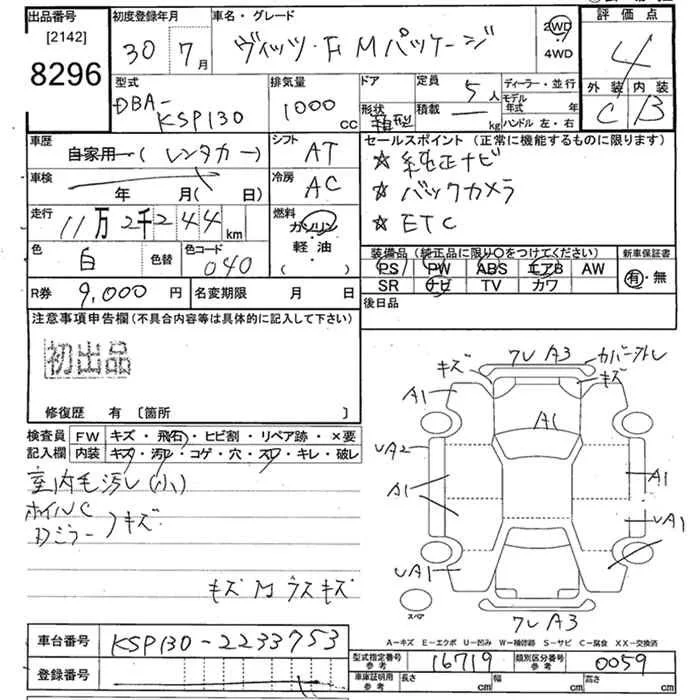 出品番号
[2142]
8296
初度登録年月
30 7月
車名・グレード
ヴィッツ・F Mパッケージ
2WD
4WD
評価点
4
外装 内装
C B
型式
DBA-
KSP130
排気量
1000
cc
ドア
形状
定員
5人
積載
kg
ディーラー・並行
モデル
年式 年
ハンドル 左・右
車歴
自家用 (レンタカー)
シフト
AT
車検
年 月( 日)
冷房
AC
走行
11万2千244
km
燃料
ガソリン
軽・油
( )
色
白
色替
色コード
040
R券
9,000円
名変期限 月 日
セールスポイント (正常に機能するものに限ります)
☆ 純正ナビ
☆ バックカメラ
☆ ETC
装備品 (純正品に限り〇をつけてください)
PS PW ABS エアB AW
SR ナビ TV カワ
新車保証書
有・無
後日品
注意事項申告欄(不具合内容等は具体的に記入して下さい)
初出品
修復歴 有 〔箇所 〕
検査員
記入欄
FW キズ・飛石・ヒビ割・リペア跡・×要
内装 キズ・汚レ・コゲ・穴・スレ・キレ・破レ
室内毛汚レ(小)
ホイルC
Dミラー
キズ
キズM ウスキズ
フレA3
カバー外レ
キズ
キズ
A1
A1
UA2
A1
A1
UA1
UA1
スペア
フレA3
A-キズ E-エクボ U-凹み W-補修跡 S-サビ C-腐食 XX-交換済
車台番号
KSP130-2233753
登録番号
型式指定番号
参考
16719
類別区分番号
参考
0059
車庫証明用
参考
長さ cm
幅 cm
高さ cm